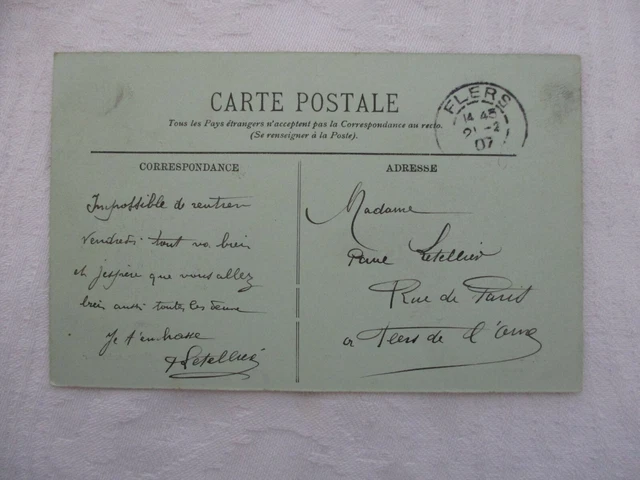 CARTE POSTALE
Tous les Pays étrangers n'acceptent pas la Correspondance au recto.
(Se renseigner à la Poste).
FLERS
14 45
21 -2
07
CORRESPONDANCE
Impossible de rentrer
vendredi tout va bien
et j'espère que vous allez
bien aussi toutes les deux
Je t'embrasse
Letellier
ADRESSE
Madame
Letellier
Rue de Paris
a Flers de l'Orne